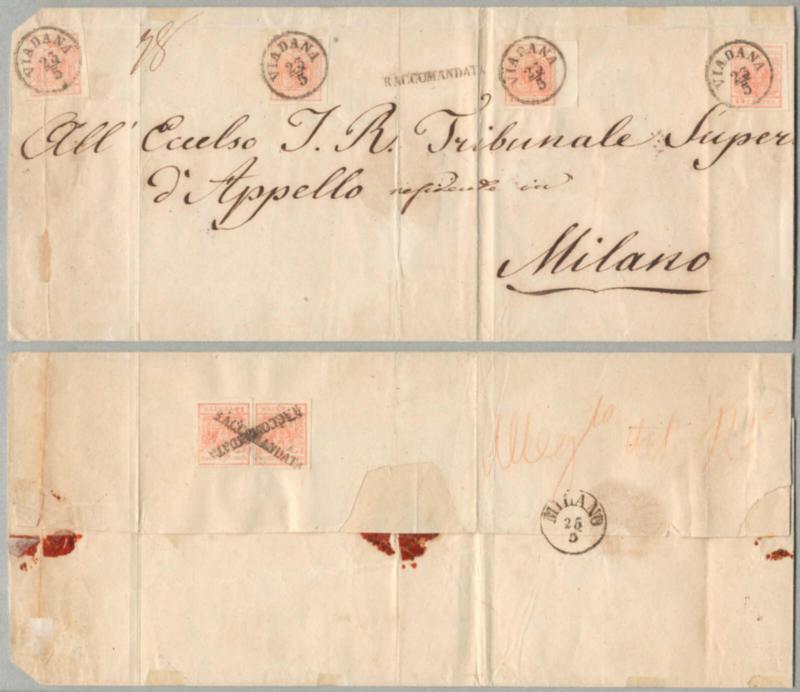 VIADANA
23
5
98
VIADANA
23
5
RACCOMANDATA
VIADANA
23
5
VIADANA
23
5
All' Eccelso I. R. Tribunale Super
d'Appello residente in
Milano
RACCOMANDATA
RACCOMANDATA
MILANO
25
5